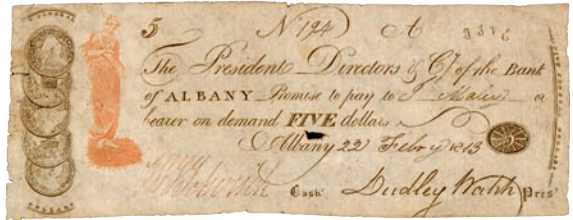 5 No 194 A
The President Directors & Co. of the Bank
of ALBANY Promise to pay to or
bearer on demand FIVE dollars
Albany 22 Febry 1813
Cashr Dudley Walsh Prest